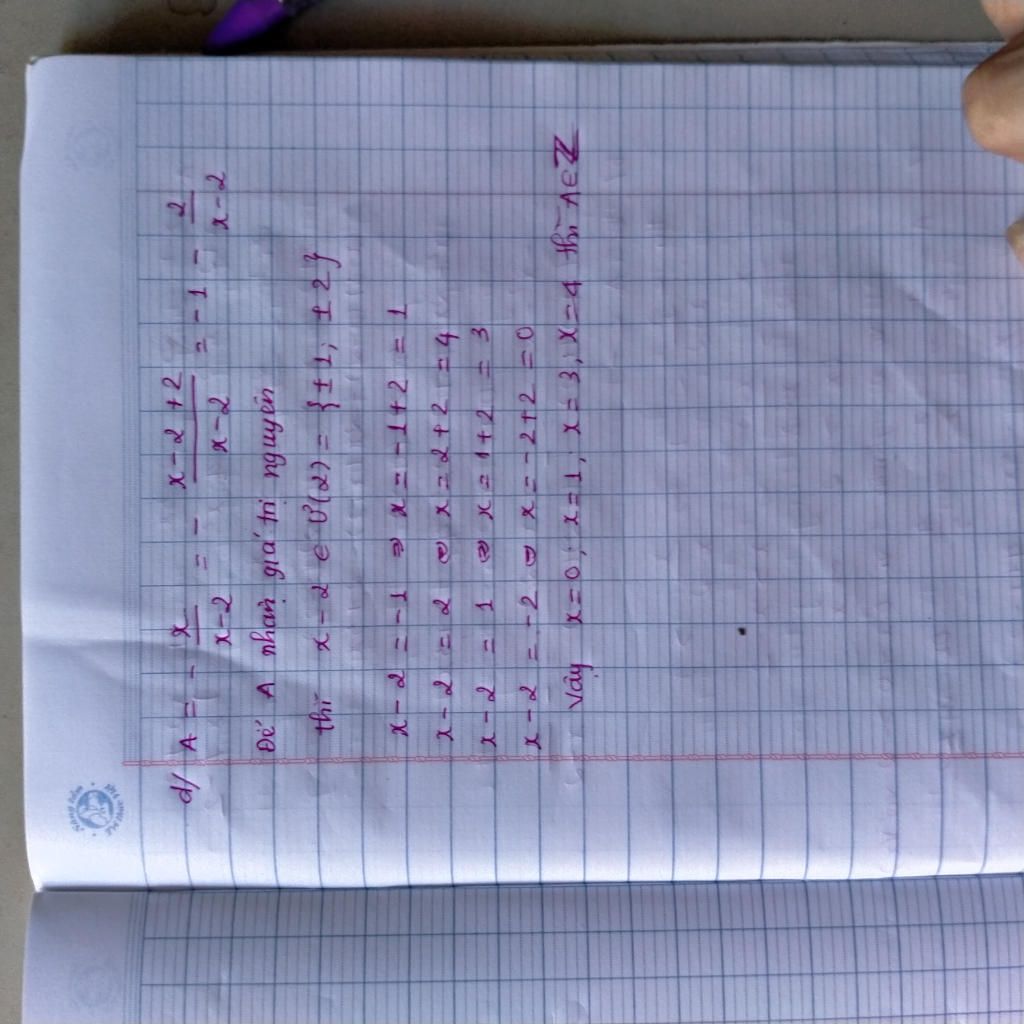 d/ A = - x/(x-2) = - (x-2+2)/(x-2) = -1 - 2/(x-2)
Để A nhận giá trị nguyên
thì x-2 ∈ Ư(2) = {±1; ±2}
x-2 = -1 ⇒ x = -1+2 = 1
x-2 = 2 ⇔ x = 2+2 = 4
x-2 = 1 ⇔ x = 1+2 = 3
x-2 = -2 ⇔ x = -2+2 = 0
Vậy x=0; x=1; x=3; x=4 thì A ∈ Z